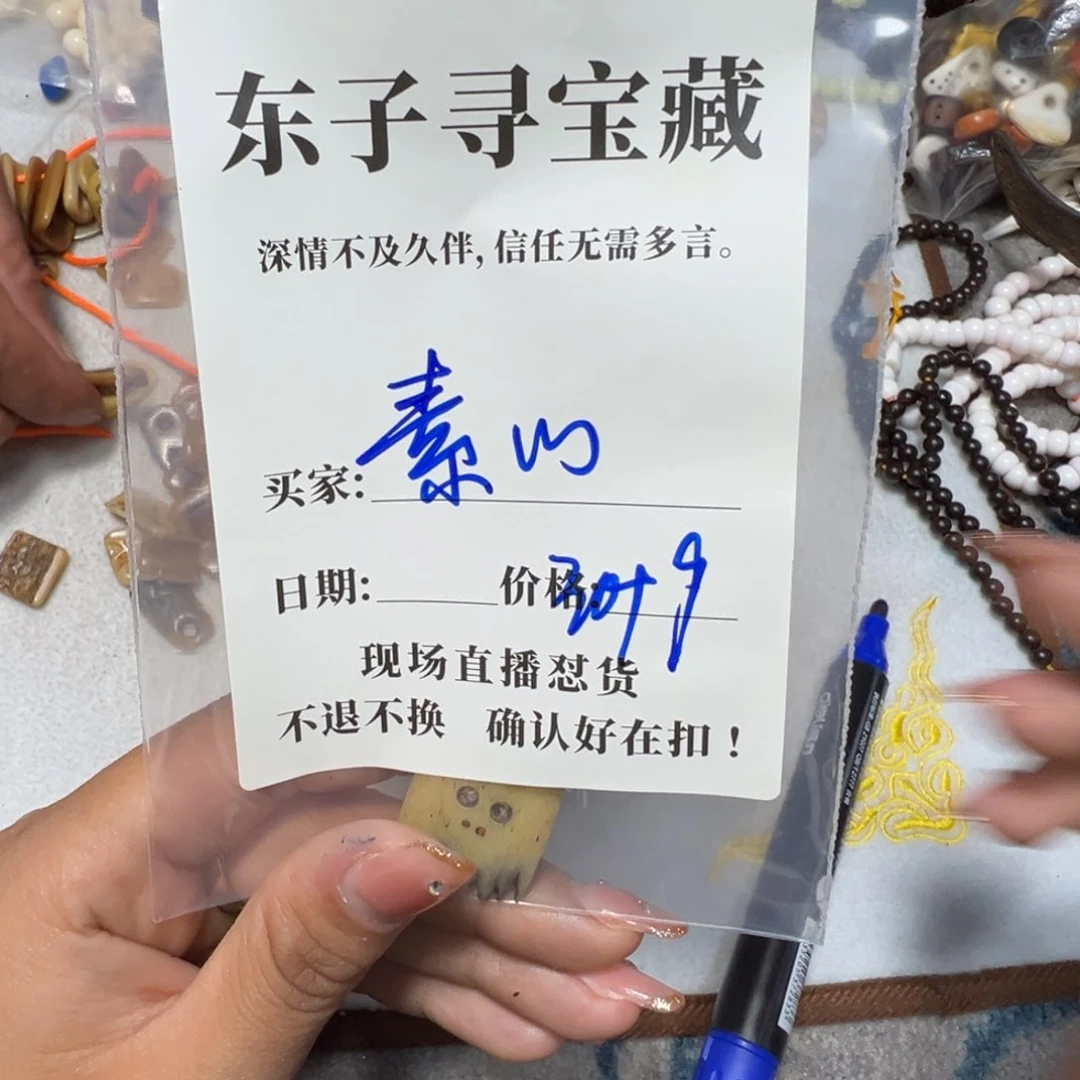 东子寻宝藏
深情不及久伴,信任无需多言。
买家:素
日期: 价格:
现场直播怼货
不退不换 确认好在扣!